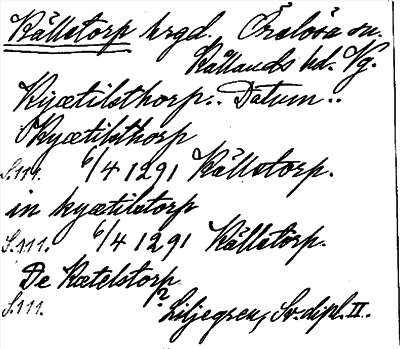 Källstorp hrgd, Örslösa sn.
Kållands hd. Vg.
Kyætilsthorp.. Datum..
Kyætilsthorp
S.111. 6/4 1291 Källstorp.
in kyætilstorp
S.111. 6/4 1291 Källstorp.
De Kætelstorp
S.111. ? Liljegren, Sv. dipl. II.